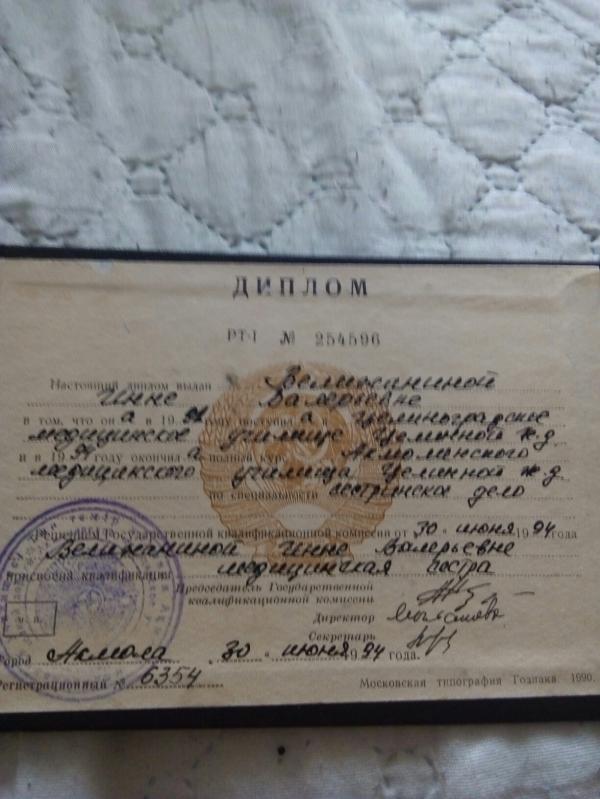 ДИПЛОМ
РТ-I № 254596
Настоящий диплом выдан Великаниной
Инне Валерьевне
в том, что он а в 19 году поступил а в Целиноградское
медицинское училище Целинной ж.д
и в 1994 году окончил а полный курс Акмолинского
медицинского училища Целинной ж.д
по специальности сестринское дело
Решением Государственной квалификационной комиссии от 30 " июня 1994 года
Великаниной Инне Валерьевне
присвоена квалификация медицинская сестра
Председатель Государственной
квалификационной комиссии
Директор
Секретарь
Город Акмола " 30 " июня 1994 года.
Регистрационный № 6354
Московская типография Гознака. 1990.